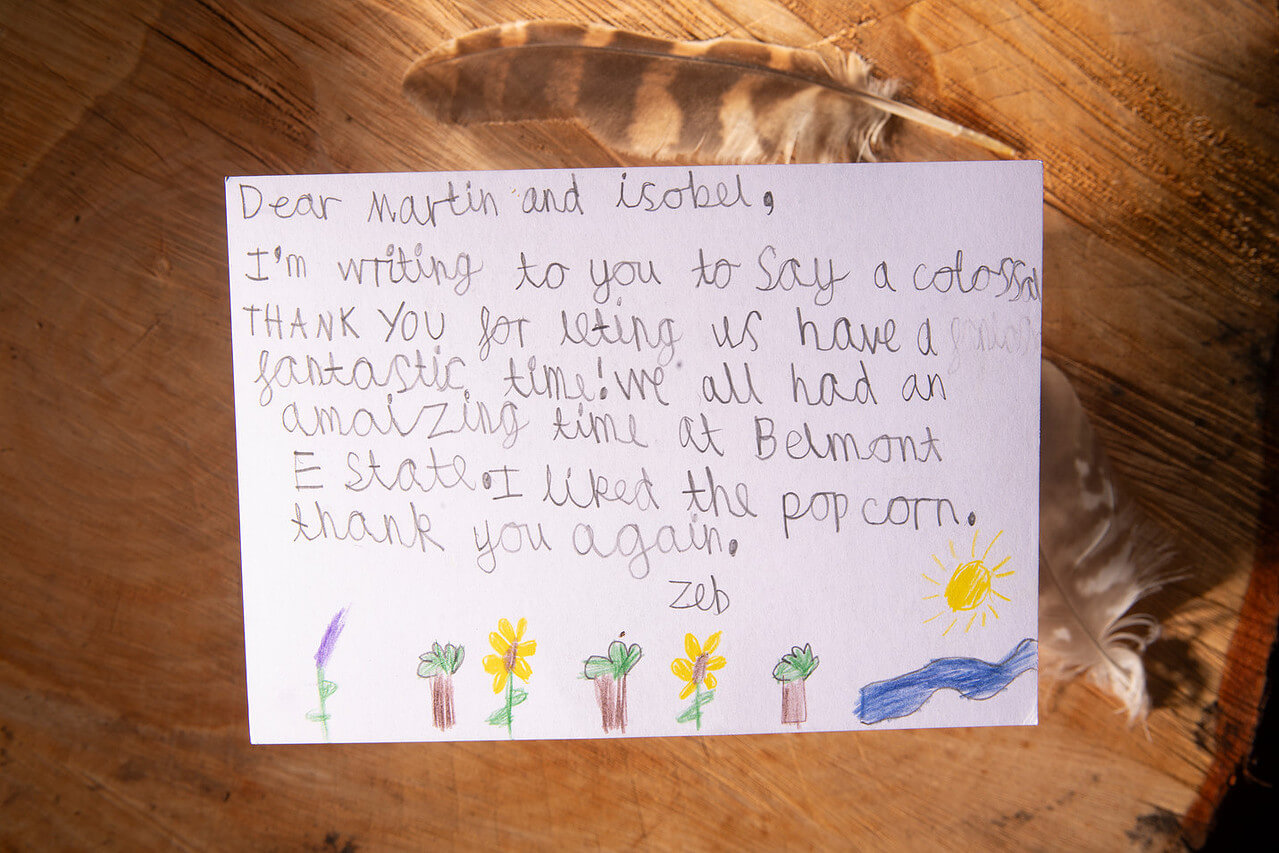 Dear Martin and isobel,
I'm writing to you to say a colossal
THANK YOU for leting us have a
fantastic time! we all had an
amaizing time at Belmont
Estate. I liked the popcorn.
thank you again.
zeb